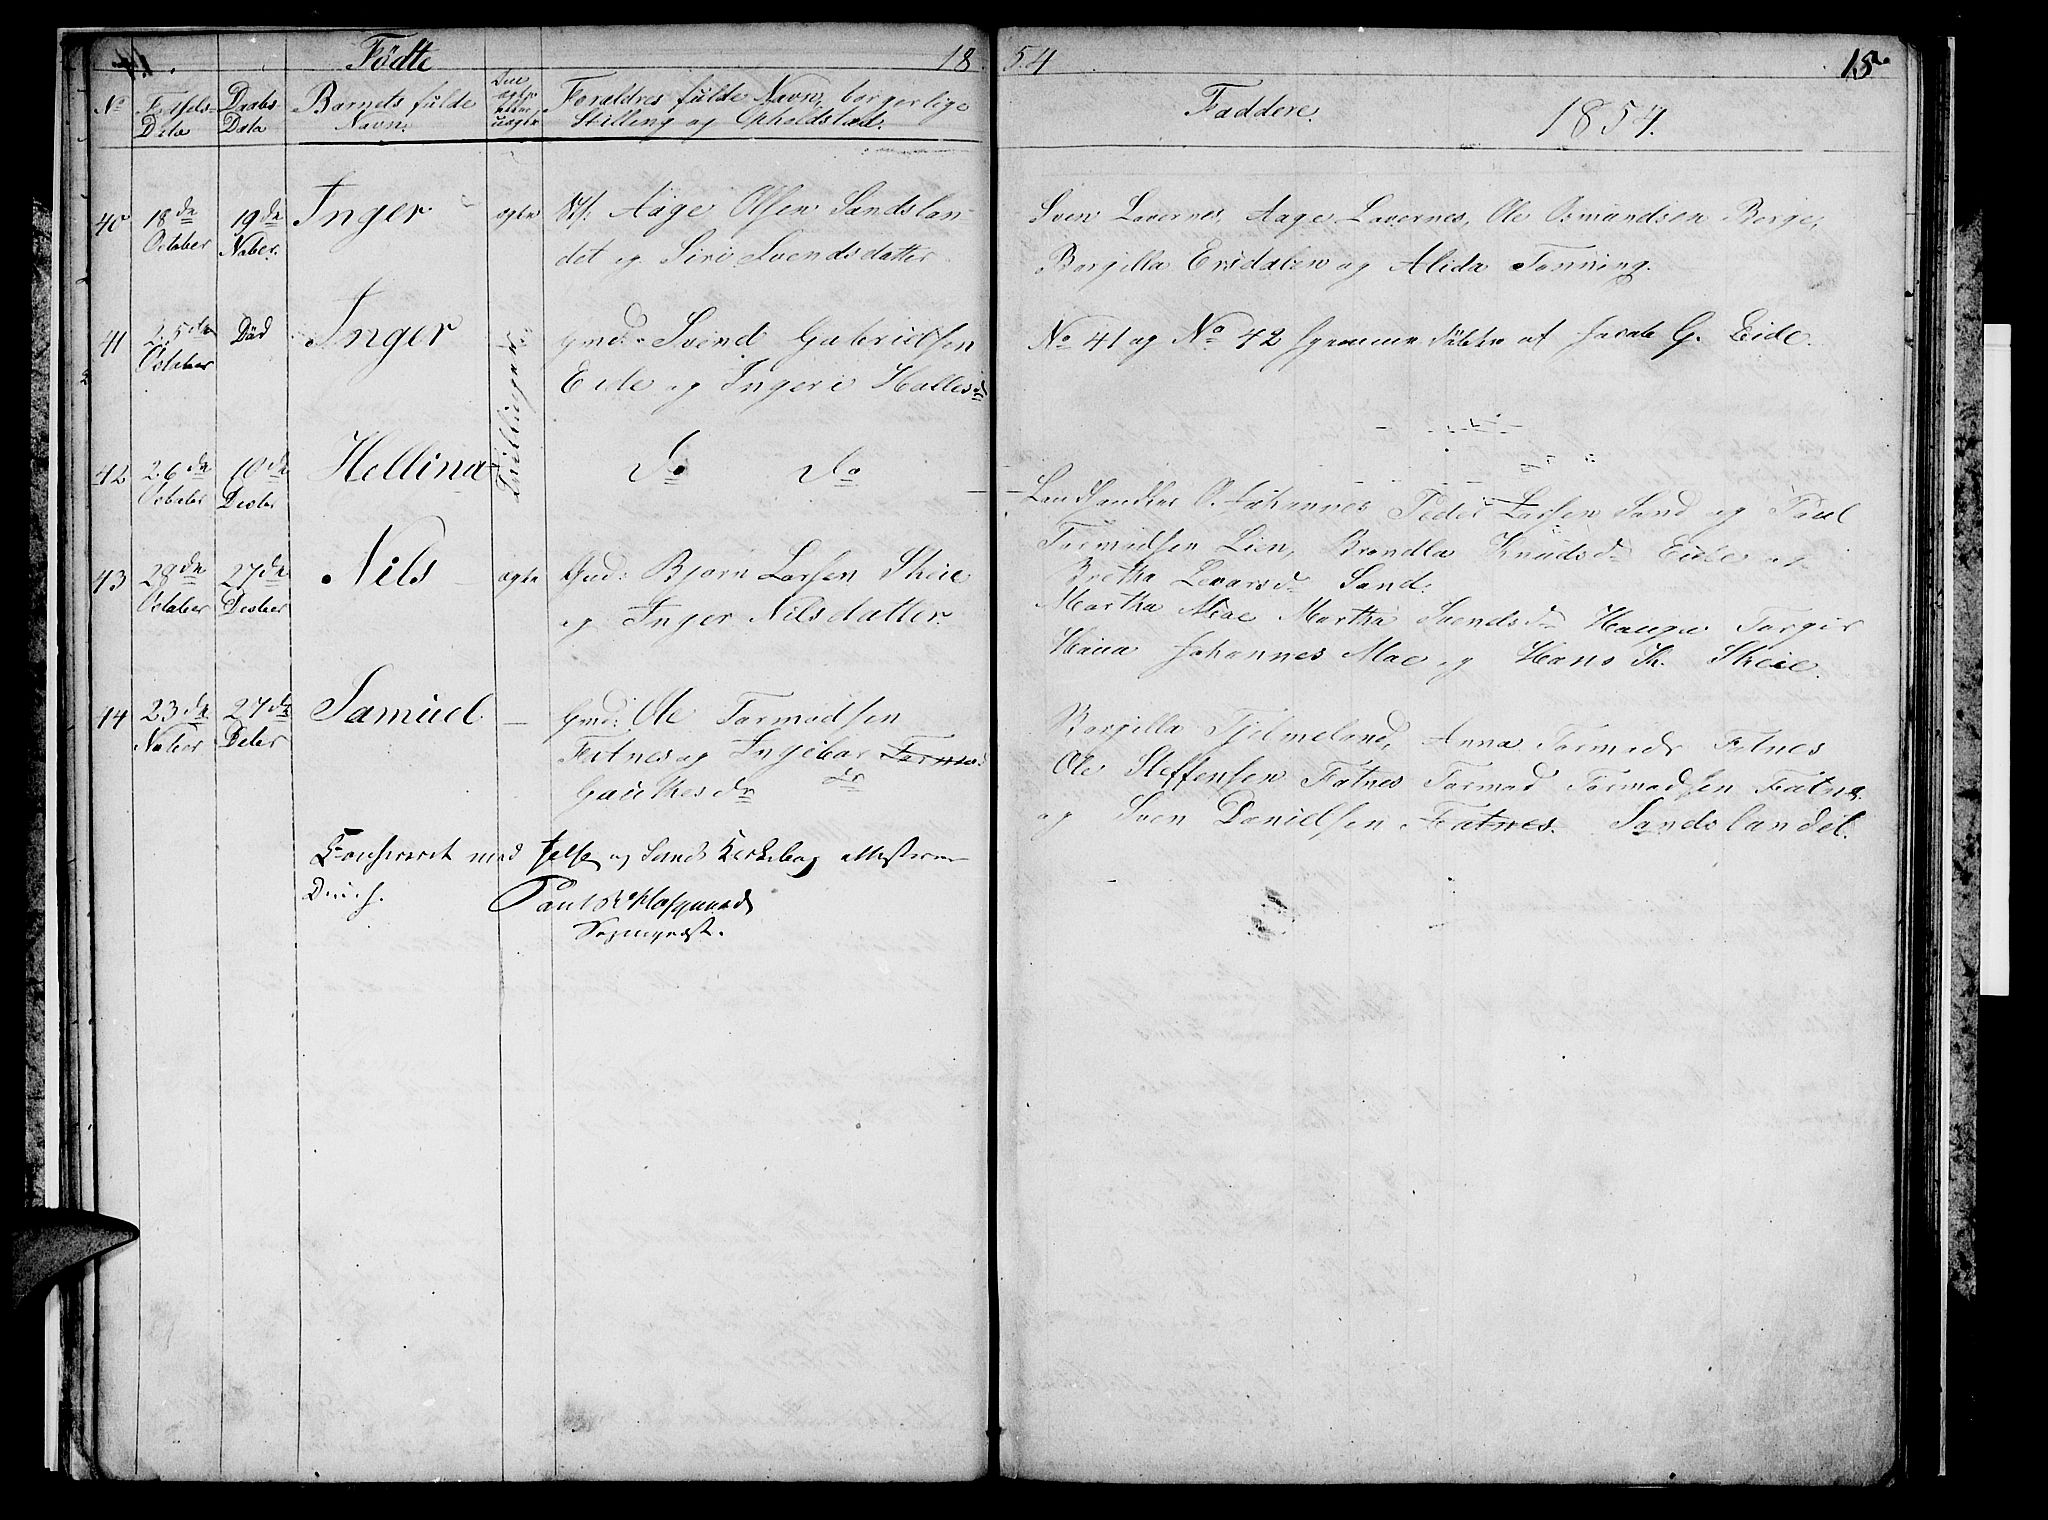 14. Födte 18
No Födsels Data Daabs Data Barnets fulde Navn. Om ægte eller uægte Foraldres fulde Navn, borgerlige
Stilling og Opholdstæd.
40 18de October 19de Nober. Inger ægte Hf: Aage Olsen Sandslan-
det og Siri Svendsdatter
41 25de October Död Inger Tvillinger Gmd: Svend Gabrielsen
Eide og Ingeri Hallesd
42 26de October 10de Decber Hellina Do Do
43 28de October 27de Decber Nils ægte Gmd: Bjørn Larsen Skeie
og Inger Nilsdatter.
44 23de Nober 27de Decber Samuel — Gmd: Ole Tormodsen
Fatnes og Ingebor
Gautkesdr
Confereret med Jelse og Sands Kirkebog attesterer
Paul
Sogneprest.
54 15.
Faddere. 1854.
Sven Lavernes, Aage Lavernes, Ole Osmundsen Borge,
Borgilla Ersdalen og Alida Tonning.
No 41 og No 42 hjemme döbte af Jacob G. Eide.
Landhandler O. Johannes Peder Larsen Sand og Paul
Tormodsen Lien, Brandla Knudsd Eide og
Bretha Levarsd Sand.
Martha Moe Martha Svendsd Hauge Torger
Johannes Moe og Hans Th. Skeie.
Borgilla Tjelmeland, Anna Tormods Fatnes
Ole Steffensen Fatnes Tormod Tormodsen Fatnes
og Sven Danielsen Fatnes. Sandslandet.